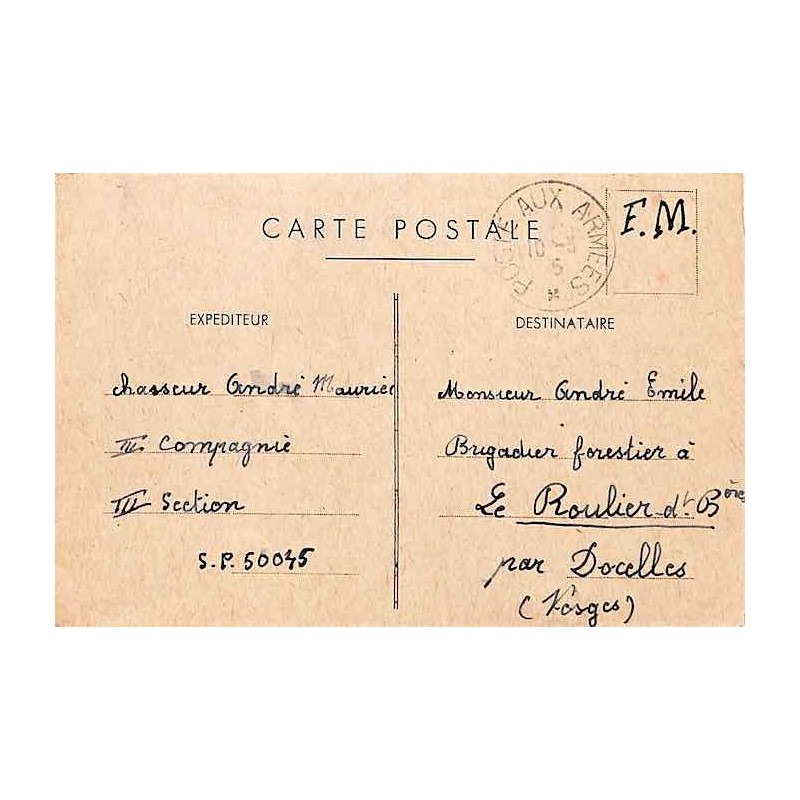 CARTE POSTALE
POSTE AUX ARMÉES
10-3
F.M.
EXPEDITEUR
chasseur André Maurice
III. Compagnie
III Section
S.P. 50045
DESTINATAIRE
Monsieur André Emile
Brigadier forestier à
Le Roulier dt Bères
par Docelles
(Vosges)